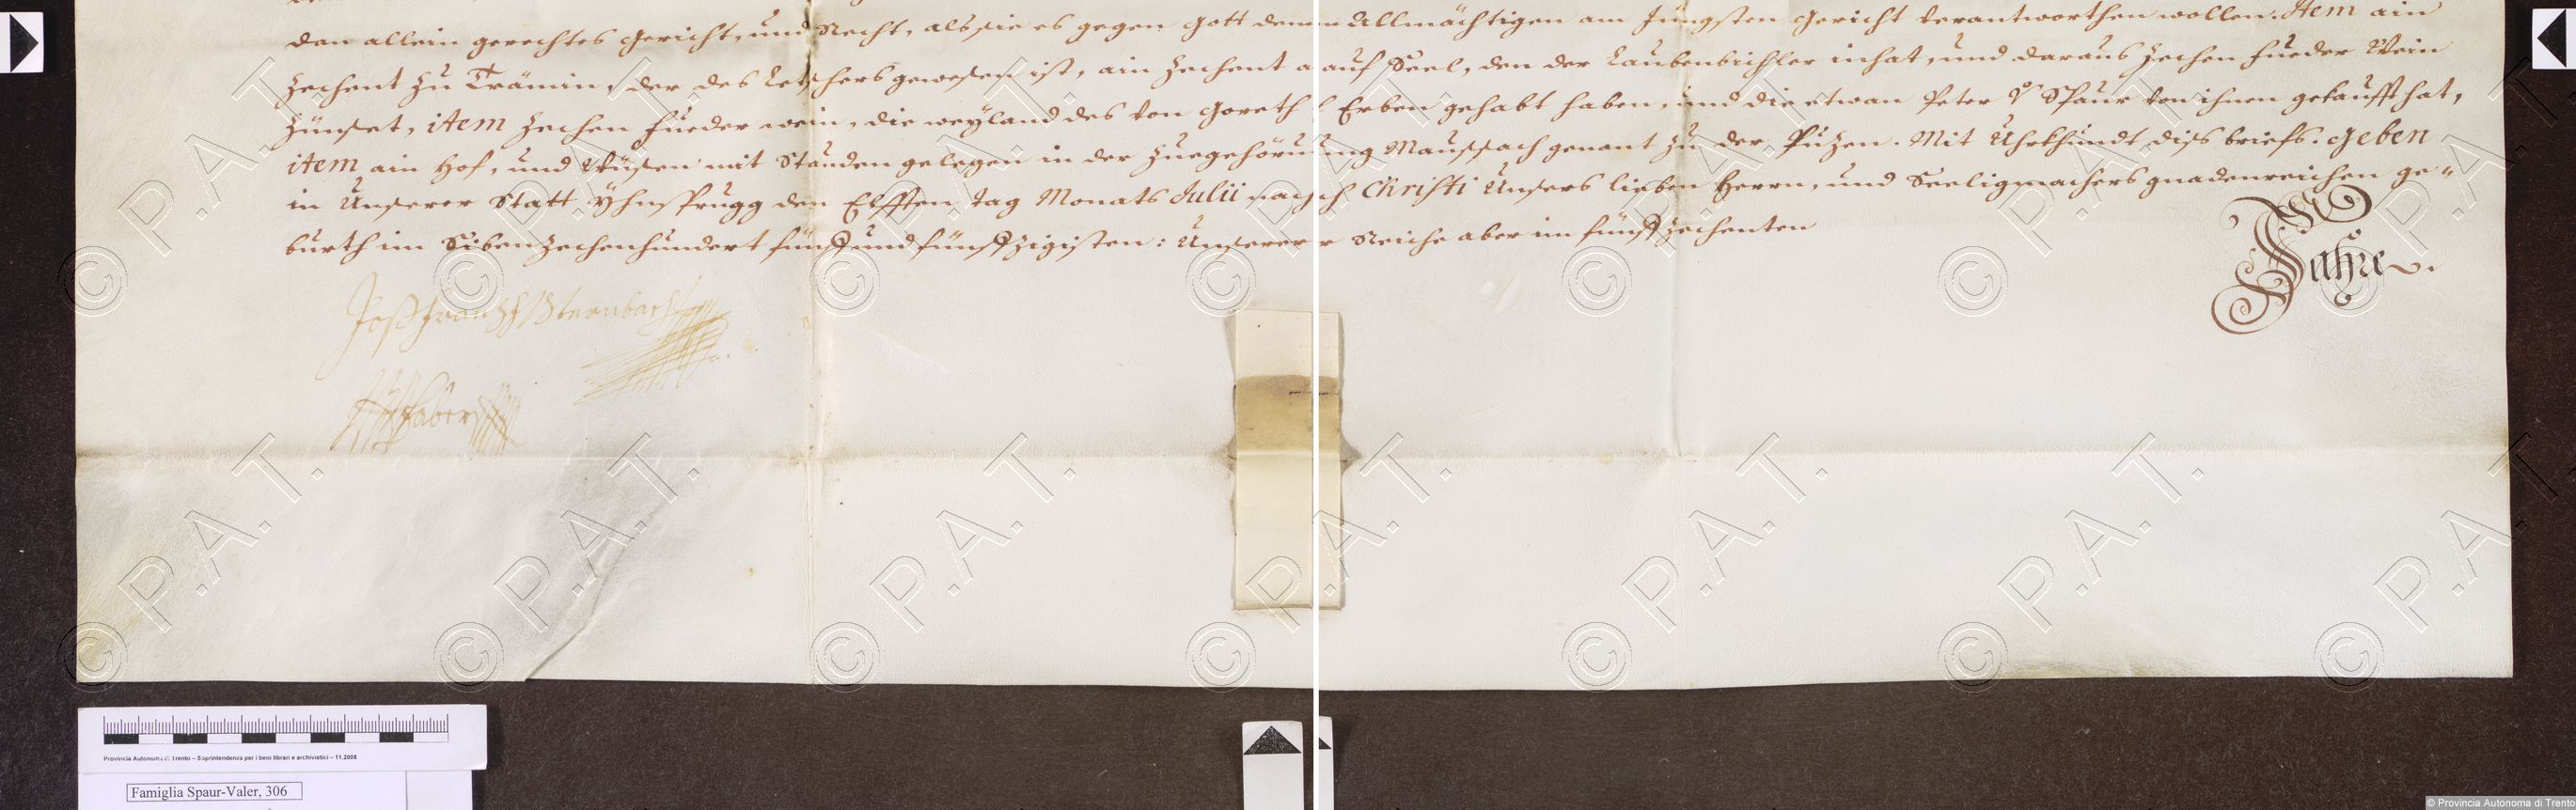 dan allein gerechtes Gericht, und Recht, als sie es gegen Gott denen Allmächtigen am Jüngsten Gericht verantworthen wollen. Item ain
Zechent zu Trämin, der des Letschers gewesen ist, ain Zechent auf Seel, den der Laubenbichler inhat, und daraus Zechen fueder Wein
Zünset, item Zechen fueder wein, die weyland des von Goreth Erben gehabt haben, und die etwan Peter v Spaur von ihnen gekaufft hat,
item ain Hof, und Wüsen mit Stauden gelegen in der Zuegehörung Maussach genant zu der Puzen. Mit Uhrkhundt diss briefs. Geben
in Unserer Statt Yhnsprugg den Eilfften Tag Monats Julii nach Christi Unsers lieben Herrn, und Seeligmachers gnadenreichen ge-
burth im Sibenzechenhundert fünff und fünffzigisten: Unserer Reiche aber im fünffzechenten
Jahre.
Jos Franz Sternbach
Faber
© P.A.T.
Provincia Autonoma di Trento – Soprintendenza per i beni librari e archivistici – 11.2008
Famiglia Spaur-Valer, 306
© Provincia Autonoma di Trento